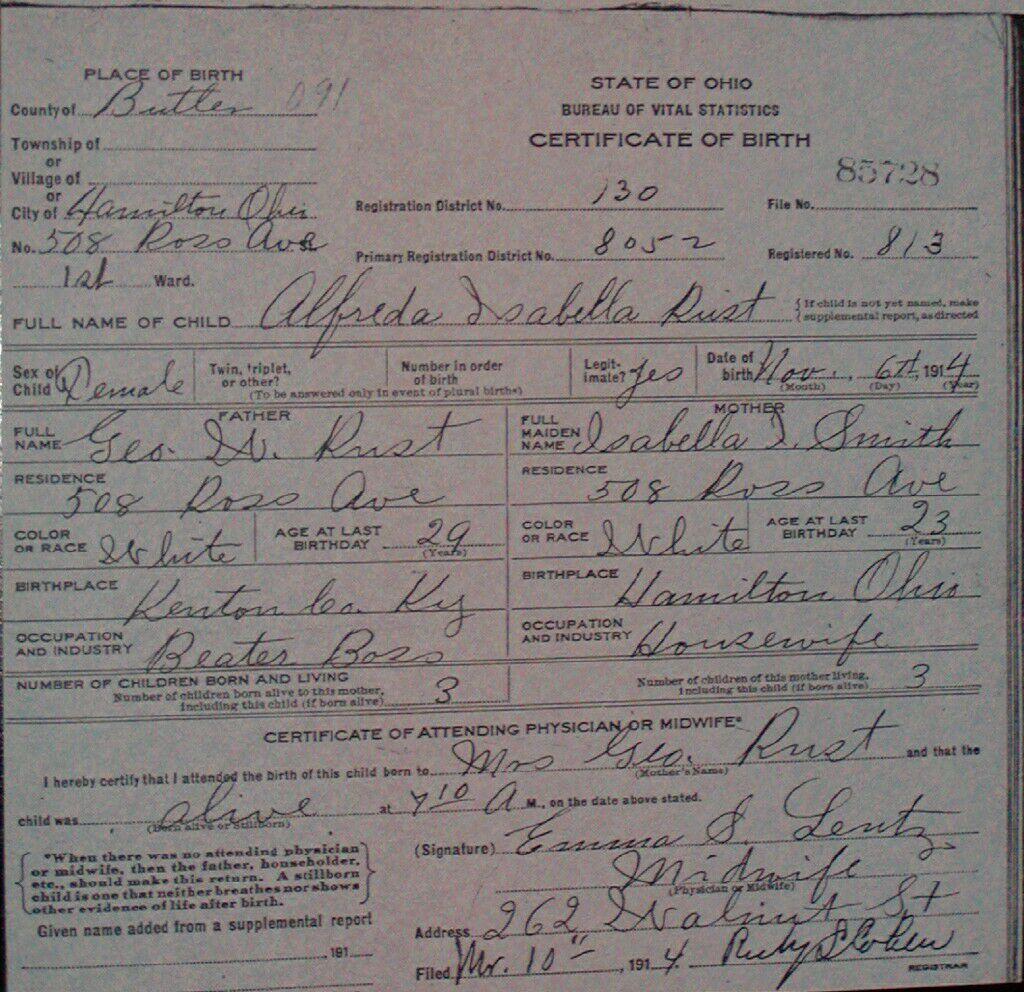 PLACE OF BIRTH
County of Butler 091
Township of
or
Village of
or
City of Hamilton Ohio
No. 508 Ross Ave St.
1st Ward.
STATE OF OHIO
BUREAU OF VITAL STATISTICS
CERTIFICATE OF BIRTH
85728
Registration District No. 130 File No.
Primary Registration District No. 8052 Registered No. 813
FULL NAME OF CHILD Alfreda Isabella Rust { If child is not yet named, make supplemental report, as directed
Sex of Child Female Twin, triplet, or other? Number in order of birth (To be answered only in event of plural births) Legitimate? Yes Date of birth Nov. 6th, 1914
(Month) (Day) (Year)
FATHER MOTHER
FULL NAME Geo. W. Rust FULL MAIDEN NAME Isabella I. Smith
RESIDENCE 508 Ross Ave RESIDENCE 508 Ross Ave
COLOR OR RACE White AGE AT LAST BIRTHDAY 29 (Years) COLOR OR RACE White AGE AT LAST BIRTHDAY 23 (Years)
BIRTHPLACE Kenton Co. Ky BIRTHPLACE Hamilton Ohio
OCCUPATION AND INDUSTRY Beater Boss OCCUPATION AND INDUSTRY Housewife
NUMBER OF CHILDREN BORN AND LIVING
Number of children born alive to this mother, including this child (if born alive) 3 Number of children of this mother living, including this child (if born alive) 3
CERTIFICATE OF ATTENDING PHYSICIAN OR MIDWIFE*
I hereby certify that I attended the birth of this child born to Mrs Geo. Rust and that the
(Mother's Name)
child was alive at 7 10 A M., on the date above stated.
(Born alive or Stillborn)
*When there was no attending physician
or midwife, then the father, householder,
etc., should make this return. A stillborn
child is one that neither breathes nor shows
other evidence of life after birth.
(Signature) Emma S. Lentz
Midwife
(Physician or Midwife)
Given name added from a supplemental report
191
Address 262 Walnut St
Filed 10", 1914
REGISTRAR